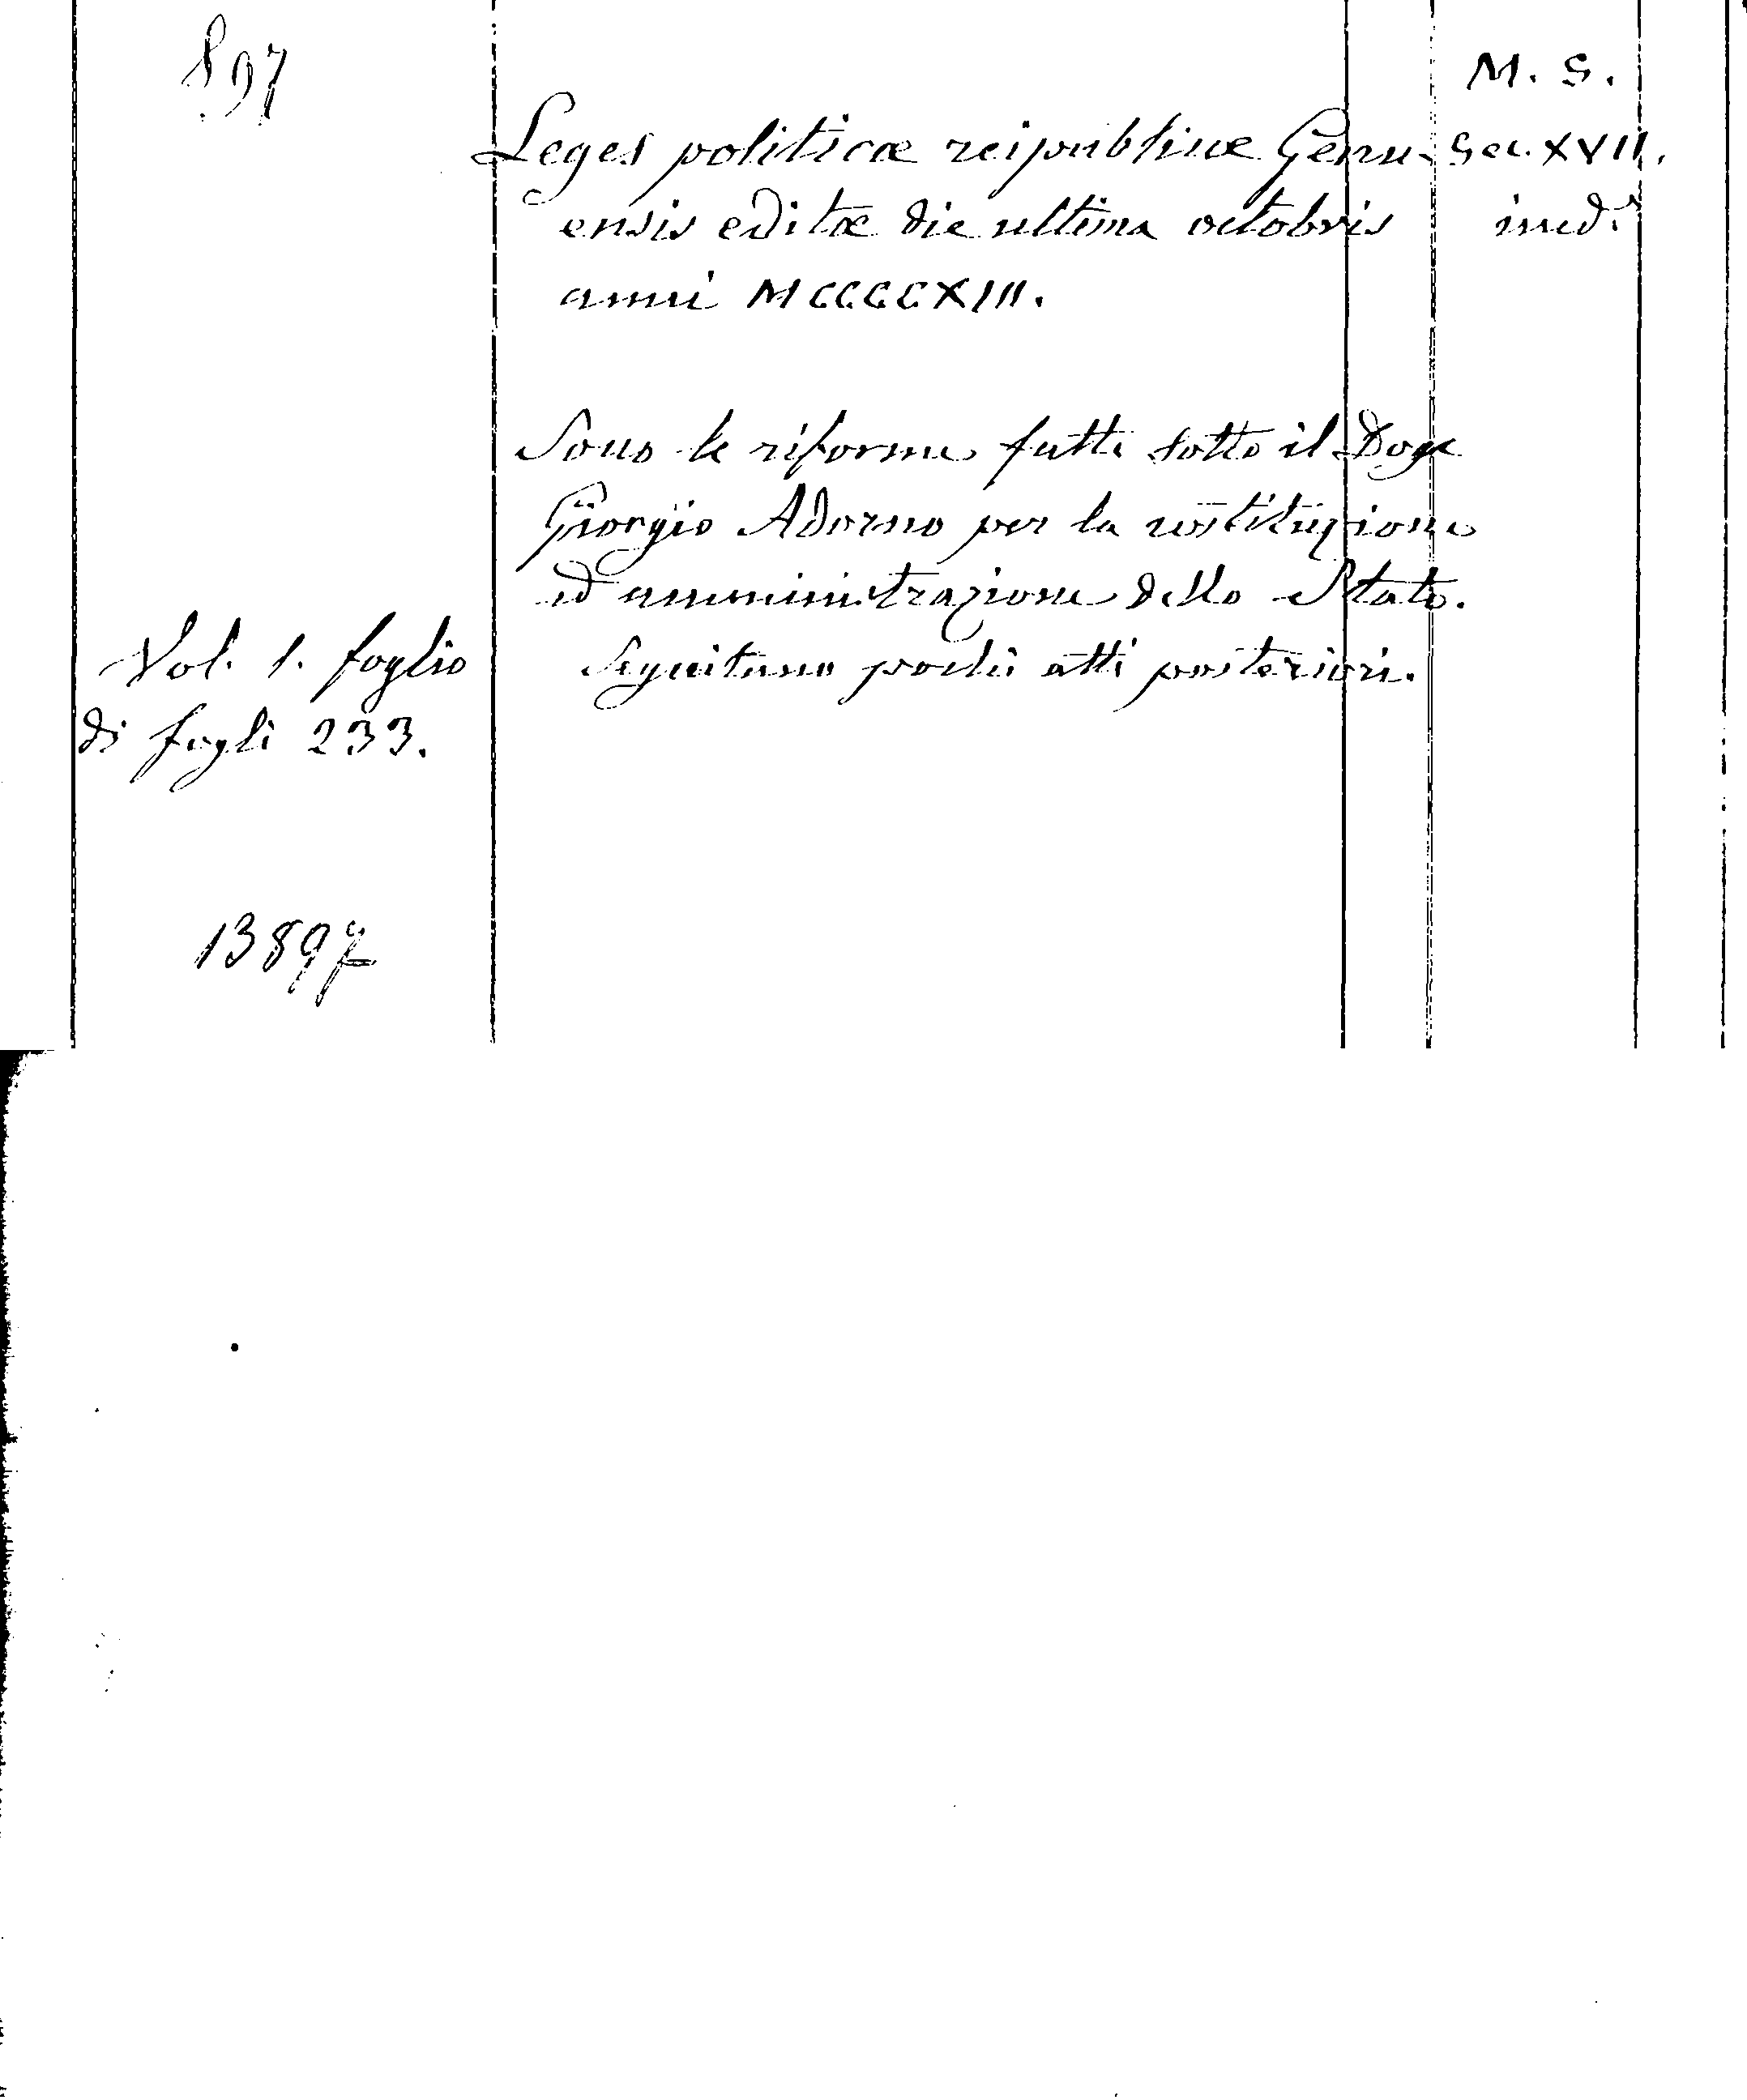 897
M. S.
Leges politicæ reipublicæ Genu- Sec. XVII.
ensis editæ die ultima octobris ined.
anni MCCCCXIII.
Sono le riforme fatte sotto il Doge
Giorgio Adorno per la costituzione
ed amministrazione dello Stato.
Vol. 1. foglio Seguitano pochi atti posteriori.
di fogli 233.
13897